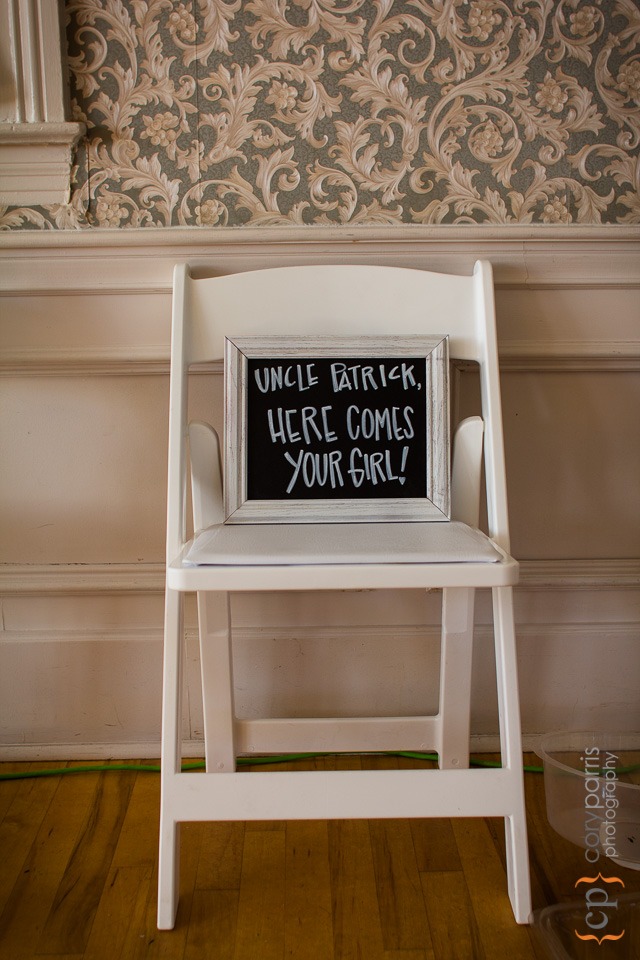 UNCLE PATRICK,
HERE COMES
YOUR GIRL!
coryparris
photography
{cp}